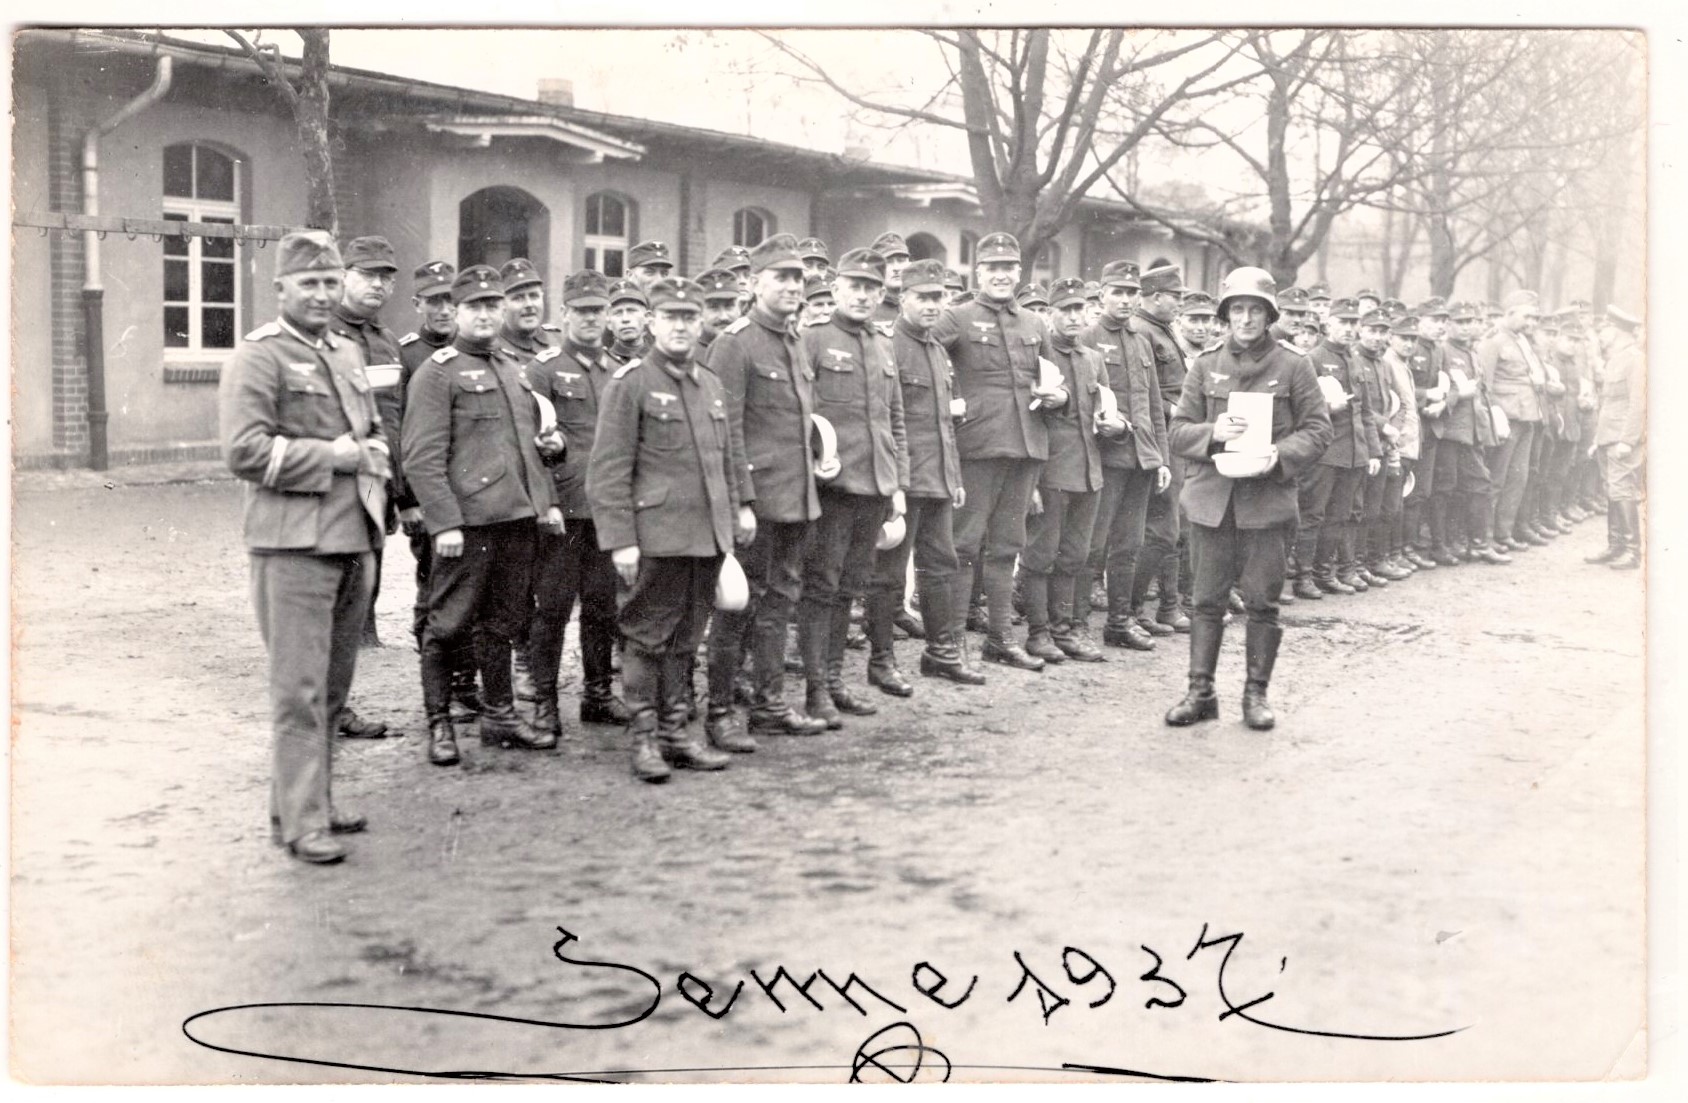 Senne 1937